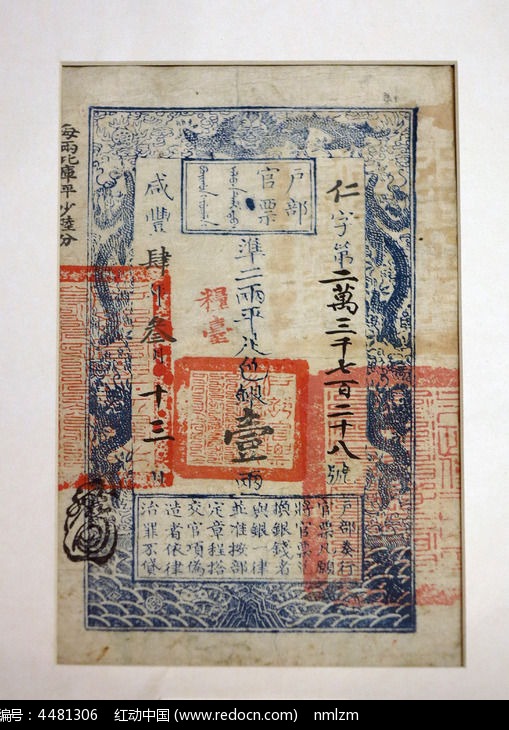 户部
官票
仁字第二萬三千七百二十八號
準二兩平足色銀壹兩
糧臺
咸豐肆年叁月十三日
每兩比庫平少陸分
户部奏行
官票凡願
將官票兑
換銀錢者
與銀一律
並准按部
定章程搭
交官項偽
造者依律
治罪不貸
编号：4481306 红动中国 (www.redocn.com) nmlzm